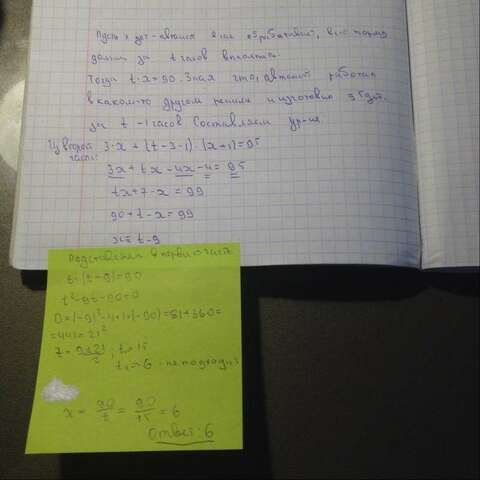 Пусть x дет-автомат в час обрабатывал, а по норме
должен за t часов выполнить
Тогда t·x=90. Зная что, автомат работал
в каком-то другом режиме и изготовил 95 дет.
за t-1 часов составляем ур-ие.
Из второй части: 3·x+(t-3-1)·(x+1)=95
3x+tx-4x-4=95
tx+t-x=99
90+t-x=99
x=t-9
Подставляем в первую часть
t·(t-9)=90
t²-9t-90=0
D=(-9)²-4·1·(-90)=81+360=
=441=21²
t=9±21/2; t₁=15
t₂=-6 - не подходит
x=90/t=90/15=6
Ответ: 6